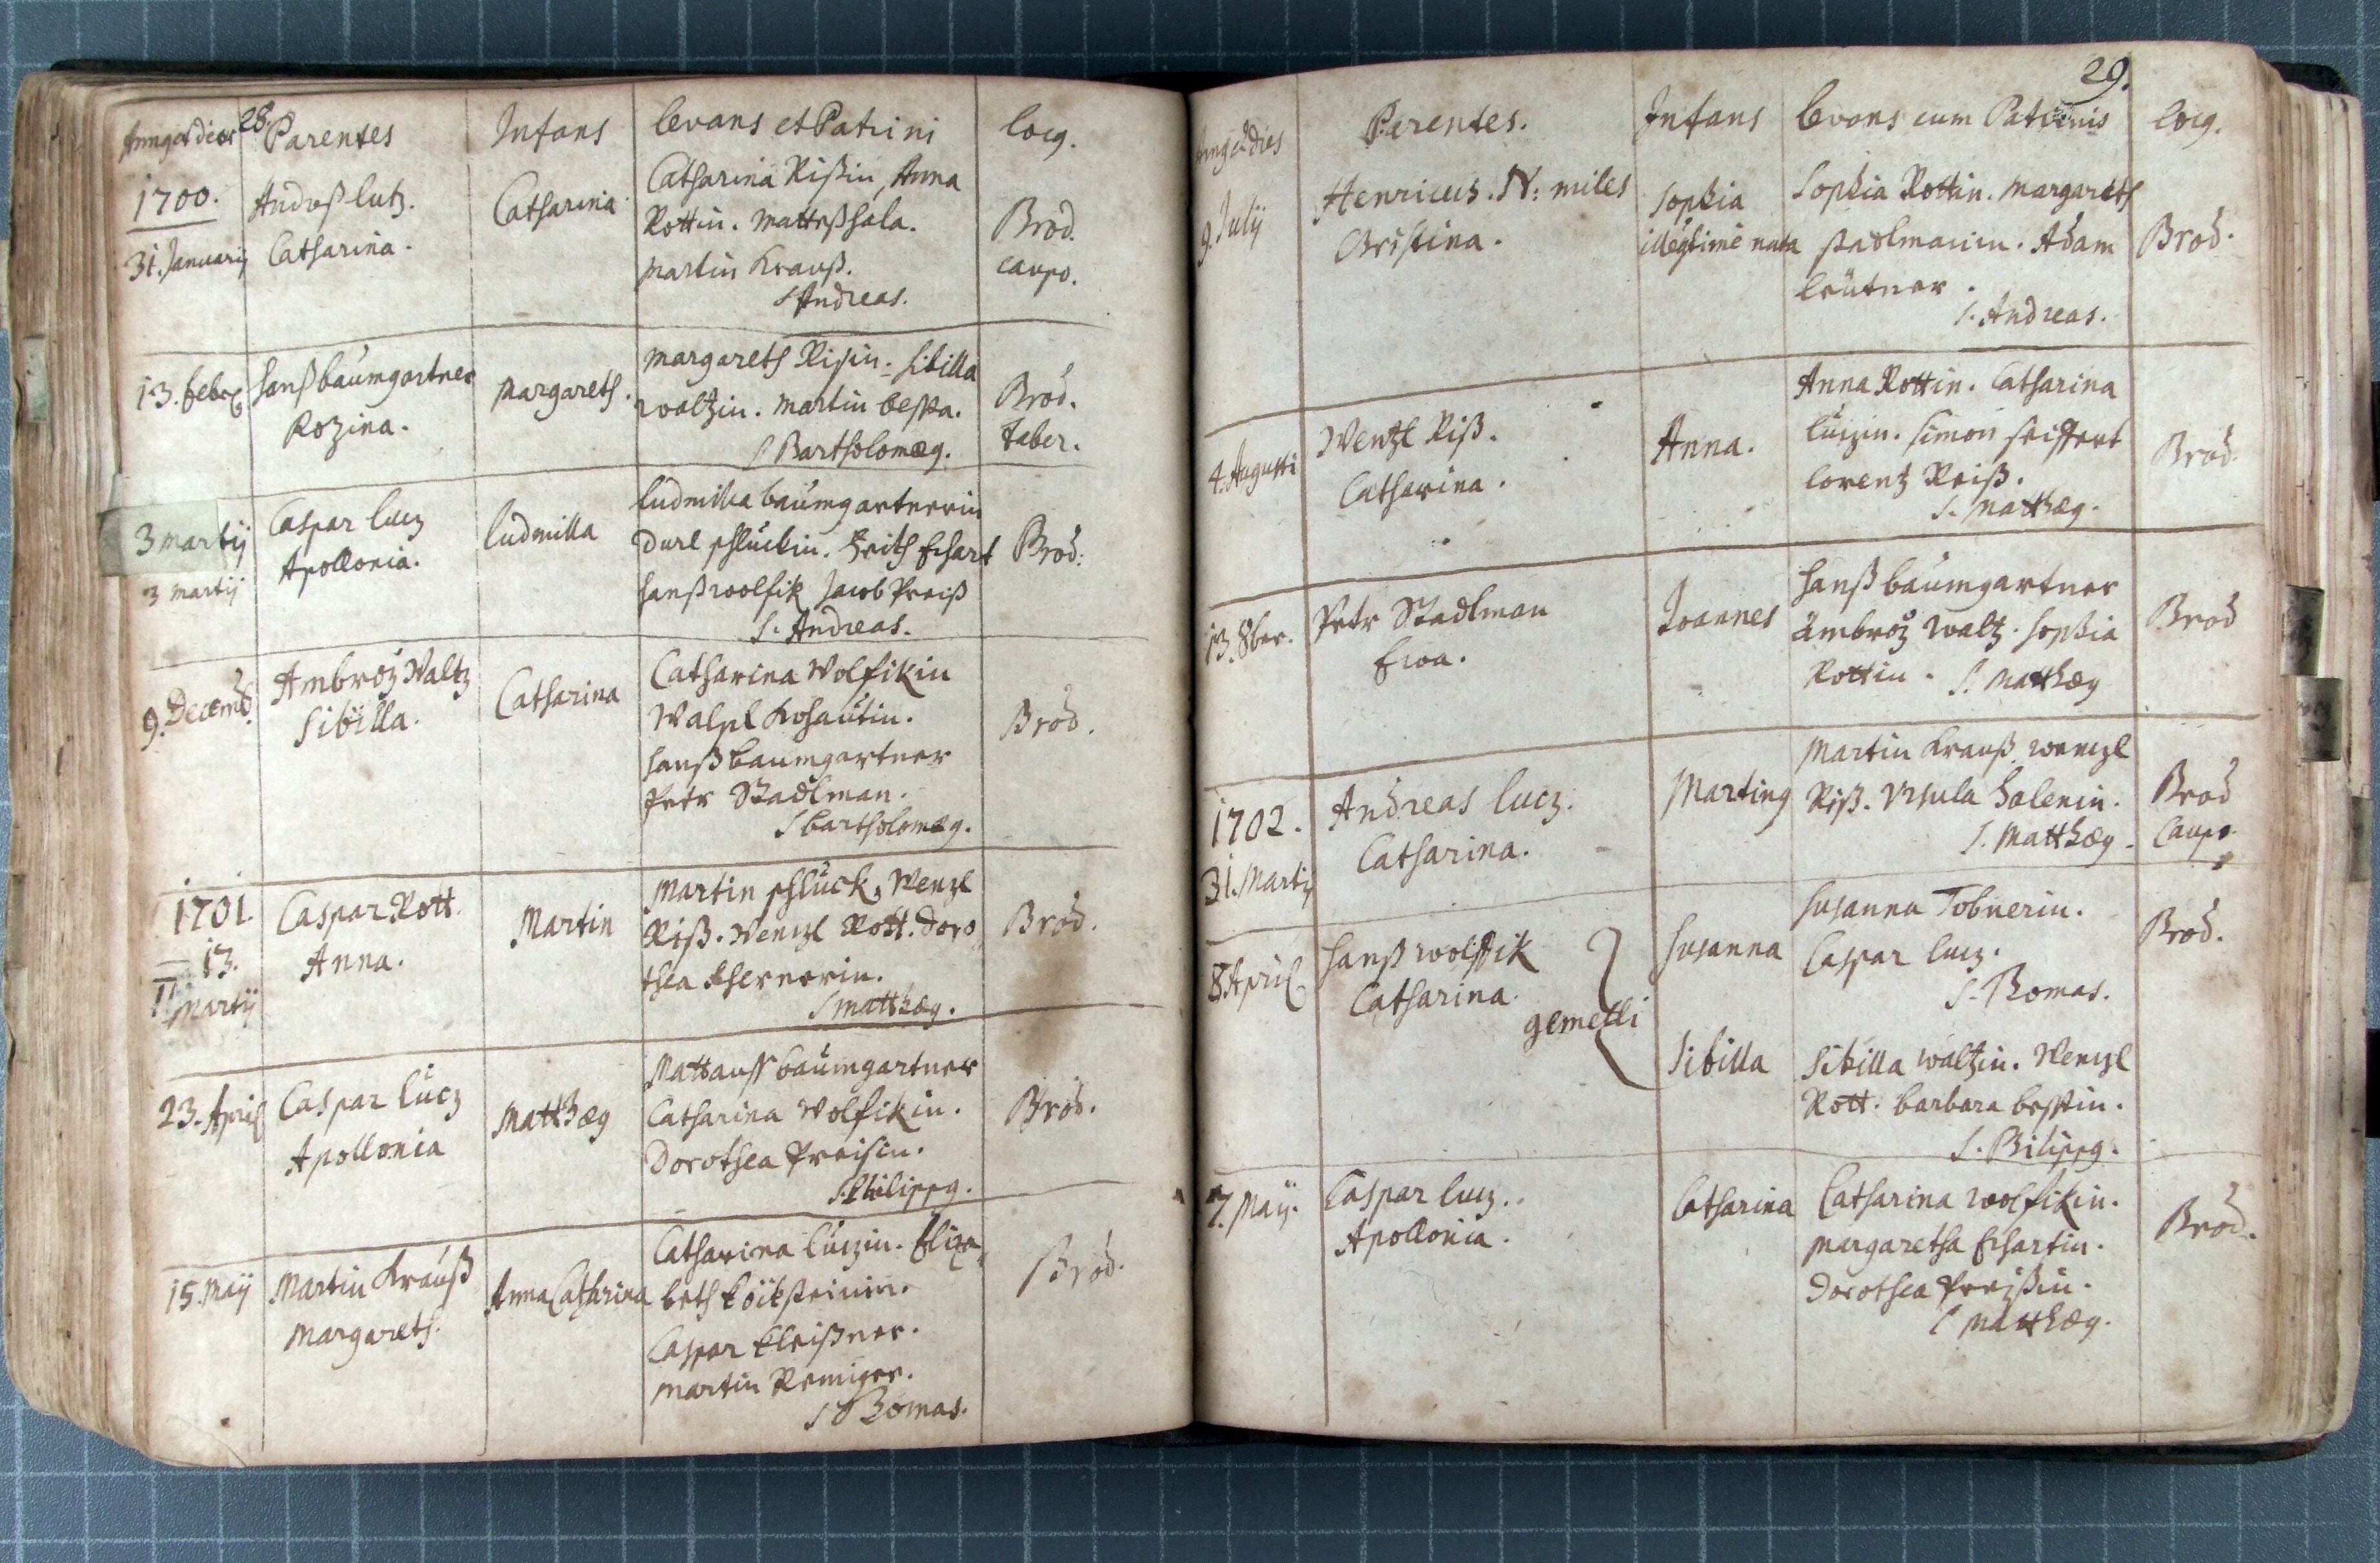 28.
Annus et dies Parentes Infans levans et Patrini locus.
1700.
31. Januarij
Andreß lutz.
Catharina.
Catharina
Catharina Rißin, Anna
Rottin. Matteß hala.
Martin Krauß.
S Andreas.
Brod.
caupo.
13. febr
hanß baumgartner
Rozina.
Margareth.
Margareth Risin. Sibilla
waltzin. Martin beska.
S Bartholomæus.
Brod.
faber.
3 Martij
3 Martij
Caspar lucz
Apollonia.
ludmilla
ludmilla baumgartnerin
Durl schluckin. Echart
hanß wolfik Jacob Preiß
S. Andreas.
Brod.
9. Decemb.
Ambroz Waltz
Sibilla.
Catharina
Catharina Wolfikin
Walpl Kohautin.
hanß baumgartner
Petr Stadlman.
S bartholomæus.
Brod.
1701.
13.
Martij
Caspar Rott.
Anna.
Martin
Martin schluck, Wenzl
Riß. Wenzl Rott. Doro
thea
S Matthæus.
Brod.
23. April
Caspar lucz
Apollonia
Matthæus
Mattauss baumgartner
Catharina Wolfikin.
Dorothea Preisin.
S. Philippus.
Brod.
15. Maij
Martin Krauß
Margareth.
Anna Catharina
Catharina luczin. Eliza
beth
Caspar kleißner.
Martin Remiger.
S Thomas.
Brod.
29.
Annus et dies Parentes. Infans levans cum Patrinis locus.
9. Julij
Henricus. N: miles
Christina.
Sophia
illegitime nata
Sophia Rottin. Margareth
stadlmanin. Adam
leutner.
S. Andreas.
Brod.
4. Augusti
Wentzl Riß.
Catharina.
Anna.
Anna Rottin. Catharina
luczin. Simon seiffert
lorentz Reiß.
S. Matthæus.
Brod.
13. 8ber.
Petr Stadlman
Ewa.
Joannes
hanß baumgartner
ambroz waltz. Sophia
Rottin. S. Matthæus
Brod
1702.
31. Martij
Andreas lucz.
Catharina.
Martinus
Martin Krauß, wenzl
Riß. Ursula halenin.
S. Matthæus.
Brod
Caupo
8 April
hanß wolfik
Catharina.
gemelli
Susanna
Susanna Tobnerin.
Caspar lucz.
S. Thomas.
Brod.
Sibilla
Sibilla waltzin. Wenzl
Rott. barbara beskin.
S. Philippus.
7. Maij.
Caspar lucz.
Apollonia.
Catharina
Catharina wolfikin.
Margaretha Echartin.
Dorothea Preißin.
S Matthæus.
Brod.